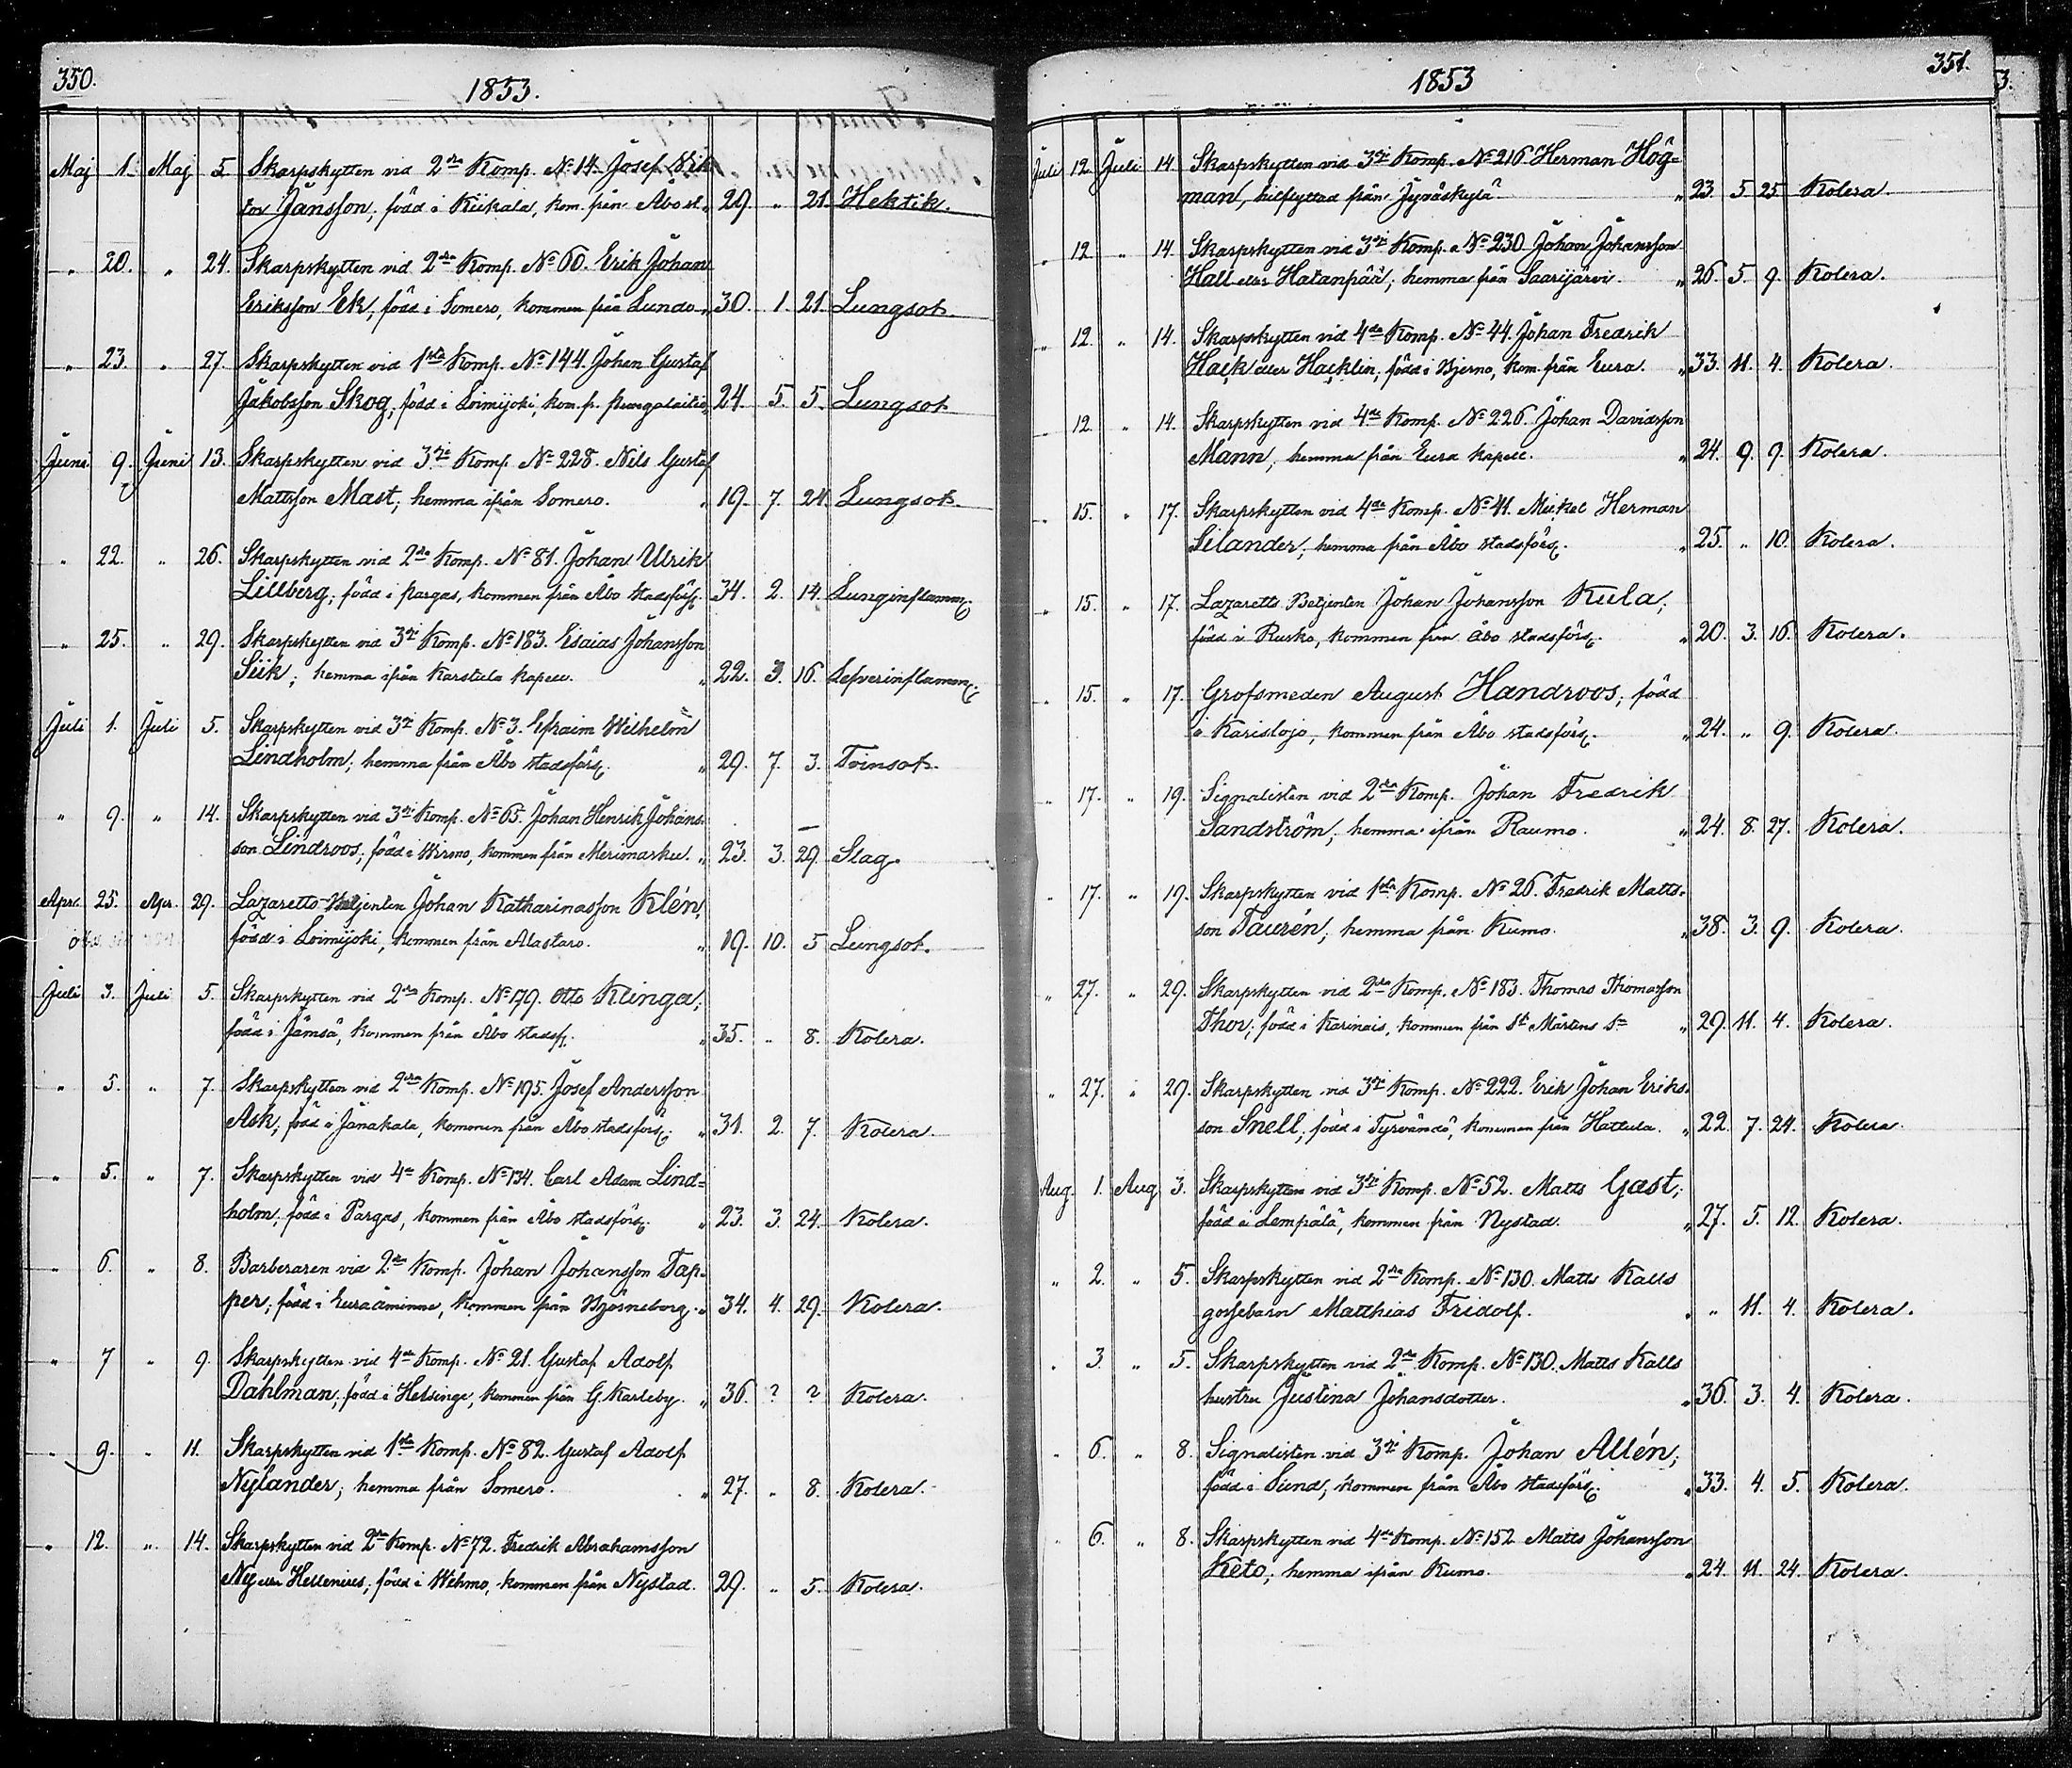 350.
1853.
Maj 1. Maj 5. Skarpskytten vid 2dra Komp. No 14. Josef Vik
tor Jansson; född i Kiikala, kom. från Åbo st. 29. " 21. Hektik.
" 20. " 24. Skarpskytten vid 2dra Komp. No 60. Erik Johan
Eriksson Ek; född i Somero, kommen från Lundo. 30. 1. 21. Lungsot.
" 23. " 27. Skarpskytten vid 1sta Komp. No 144. Johan Gustaf
Jakobsson Skog; född i Loimijoki, kom. fr. 24. 5. 5. Lungsot
Juni 9. Juni 13. Skarpskytten vid 3dje Komp No 228. Nils Gustaf
Mattsson Mast; hemma ifrån Somero. " 19. 7. 24 Lungsot.
" 22. " 26. Skarpskytten vid 2dra Komp. No 81. Johan Ulrik
Lillberg; född i Pargas, kommen från Åbo stadsförs. 34. 2. 14. Lunginflamm.
" 25. " 29. Skarpskytten vid 3dje Komp. No 183. Esaias Johansson
Siik; hemma ifrån Karstula kapell. " 22. 3. 16. Lefverinflamm.
Juli 1. Juli 5. Skarpskytten vid 3dje Komp. No 3. Efraim Wilhelm
Lindholm; hemma från Åbo stadsförs. " 29. 7. 3. Tvinsot.
" 9. " 14. Skarpskytten vid 3dje Komp. No 65. Johan Henrik Johans-
son Lindroos; född i Wirmo, kommen från Merimasku. " 23. 3. 29. Slag.
Apr. 25. Apr. 29. Lazaretts-Betjenten Johan Katharinasson Klén,
född i Loimijoki, kommen från Alastaro. " 19. 10. 5 Lungsot.
Juli 3. Juli 5. Skarpskytten vid 2dra Komp. No 179. Otto Klinga;
född i Jämsä, kommen från Åbo stadsf. " 35. " 8. Kolera.
" 5. " 7. Skarpskytten vid 2dra Komp. No 195. Josef Andersson
Ask; född i Janakala, kommen från Åbo stadsförs. " 31. 2. 7. Kolera.
" 5. " 7. Skarpskytten vid 4de Komp. No 134. Carl Adam Lind=
holm; född i Pargas, kommen från Åbo stadsförs. " 23. 3. 24. Kolera.
" 6. " 8. Barberaren vid 2dra Komp. Johan Johansson Tap-
per; född i Euraåminne, kommen från Björneborg. " 34. 4. 29. Kolera.
" 7 " 9. Skarpskytten vid 4de Komp. No 21. Gustaf Adolf
Dahlman; född i Helsinge, kommen från G. Karleby. " 36. ? ? Kolera.
" 9. " 11. Skarpskytten vid 1sta Komp. No 82. Gustaf Adolf
Nylander; hemma från Somero. " 27. " 8. Kolera.
" 12. " 14. Skarpskytten vid 2dra Komp. No 72. Fredrik Abrahamsson
Ny eller Hellenius; född i Wehmo, kommen från Nystad. 29. " 5. Kolera.
1853
351.
Juli 12. Juli 14 Skarpskytten vid 3dje Komp. No 216 Herman Hög=
man, hitflyttad från Jyväskylä " 23. 5 25 Kolera.
" 12 " 14. Skarpskytten vid 3dje Komp. No 230 Johan Johansson
Hall eller Hatanpää; hemma från Saarijärvi. " 26. 5. 9. Kolera.
" 12. " 14. Skarpskytten vid 4de Komp. No 44. Johan Fredrik
Hack eller Hacklin; född i Bjerno, kom. från Eura. " 33. 11. 4. Kolera.
" 12. " 14. Skarpskytten vid 4de Komp. No 226. Johan Davidsson
Mann; hemma från Eura kapell. " 24. 9. 9. Kolera.
" 15. " 17. Skarpskytten vid 4de Komp. No 41. Mickel Herman
Silander; hemma från Åbo stadsförs. " 25. " 10. Kolera.
" 15. " 17. Lazaretts Betjenten Johan Johansson Kula;
född i Rusko, kommen från Åbo stadsförs. " 20. 3. 16. Kolera.
" 15. " 17. Grofsmeden August Handroos; född
i Karislojo, kommen från Åbo stadsförs. " 24. " 9. Kolera.
" 17. " 19. Signalisten vid 2dra Komp. Johan Fredrik
Sandström; hemma ifrån Raumo. " 24. 8. 27. Kolera.
" 17. " 19. Skarpskytten vid 1sta Komp. No 26. Fredrik Matts-
son Taurén; hemma från Kumo. " 38. 3. 9. Kolera.
" 27. " 29. Skarpskytten vid 2dra Komp. No 183. Thomas Thomasson
Thor; född i Karinais, kommen från St Mårtens Sn " 29. 11. 4. Kolera.
" 27. " 29. Skarpskytten vid 3dje Komp. No 222. Erik Johan Eriks-
son Snell; född i Tyrvändö, kommen från Hattula. " 22. 7. 24. Kolera
Aug. 1. Aug 3. Skarpskytten vid 3dje Komp. No 52. Matts Gast;
född i Lempälä, kommen från Nystad. " 27. 5. 12. Kolera.
" 2. " 5. Skarpskytten vid 2dra Komp. No 130. Matts Kalls
gossebarn Matthias Fridolf. " " 11. 4. Kolera.
" 3. " 5. Skarpskytten vid 2dra Komp. No 130. Matts Kalls
hustru Justina Johansdotter. " 36. 3. 4. Kolera.
" 6. " 8. Signalisten vid 3dje Komp. Johan Allén;
född i Sund, kommen från Åbo stadsförs. " 33. 4. 5. Kolera.
" 6. " 8. Skarpskytten vid 4de Komp. No 152 Matts Johansson
Keto; hemma ifrån Kumo. " 24. 11. 24. Kolera.